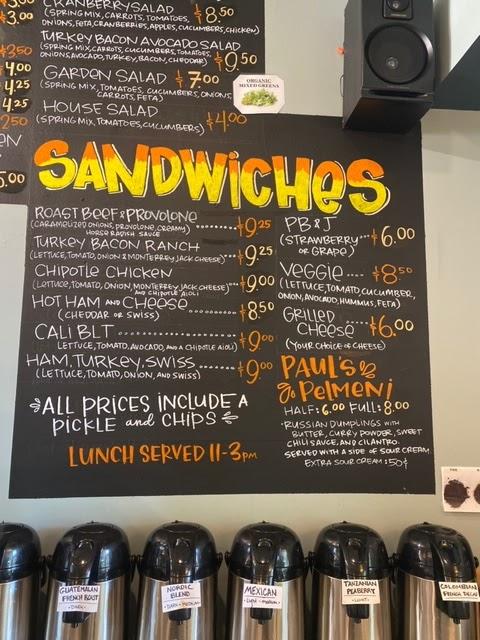 3.00
CRANBERRY SALAD $8.50
(SPRING MIX, CARROTS, TOMATOES,
ONIONS, FETA, CRANBERRIES, APPLES, CUCUMBERS, CHICKEN)
TURKEY BACON AVOCADO SALAD
(SPRING MIX, CARROTS, CUCUMBERS, TOMATOES,
ONIONS, AVOCADO, TURKEY, BACON, CHEDDAR) $9.50
GARDEN SALAD $7.00
(SPRING MIX, TOMATOES, CUCUMBERS, ONIONS,
CARROTS, FETA)
HOUSE SALAD
(SPRING MIX, TOMATOES, CUCUMBERS) $4.00
3.50
4.00
4.25
4.25
2.50
5.00
ORGANIC
MIXED GREENS
SANDWICHES
ROAST BEEF & PROVOLONE $9.25
(CARAMELIZED ONIONS, PROVOLONE, CREAMY
HORSE RADISH SAUCE
TURKEY BACON RANCH $9.25
(LETTUCE, TOMATO, ONION & MONTERREY JACK CHEESE)
CHIPOTLE CHICKEN $9.00
(LETTUCE, TOMATO, ONION, MONTERREY JACK CHEESE
AND CHIPOTLE AIOLI)
HOT HAM AND CHEESE $8.50
(CHEDDAR OR SWISS)
CALI BLT $9.00
LETTUCE, TOMATO, AVOCADO, AND A CHIPOTLE AIOLI)
HAM, TURKEY, SWISS $9.00
(LETTUCE, TOMATO, ONION, AND SWISS)
ALL PRICES INCLUDE A
PICKLE and CHIPS
LUNCH SERVED 11-3PM
PB & J
(STRAWBERRY $6.00
OR GRAPE)
VEGGIE $8.50
(LETTUCE, TOMATO, CUCUMBER,
ONION, AVOCADO, HUMMUS, FETA)
GRILLED
CHEESE $6.00
(YOUR CHOICE OF CHEESE)
PAUL'S
PELMENI
HALF: 6.00 FULL: 8.00
*RUSSIAN DUMPLINGS WITH
BUTTER, CURRY POWDER, SWEET
CHILI SAUCE, AND CILANTRO.
SERVED WITH A SIDE OF SOUR CREAM.
EXTRA SOUR CREAM: 50¢
GUATEMALAN
FRENCH ROAST
- DARK -
NORDIC
BLEND
- DARK + MEDIUM -
MEXICAN
TANZANIAN
PEABERRY
- LIGHT -
COLOMBIAN
FRENCH DECAF